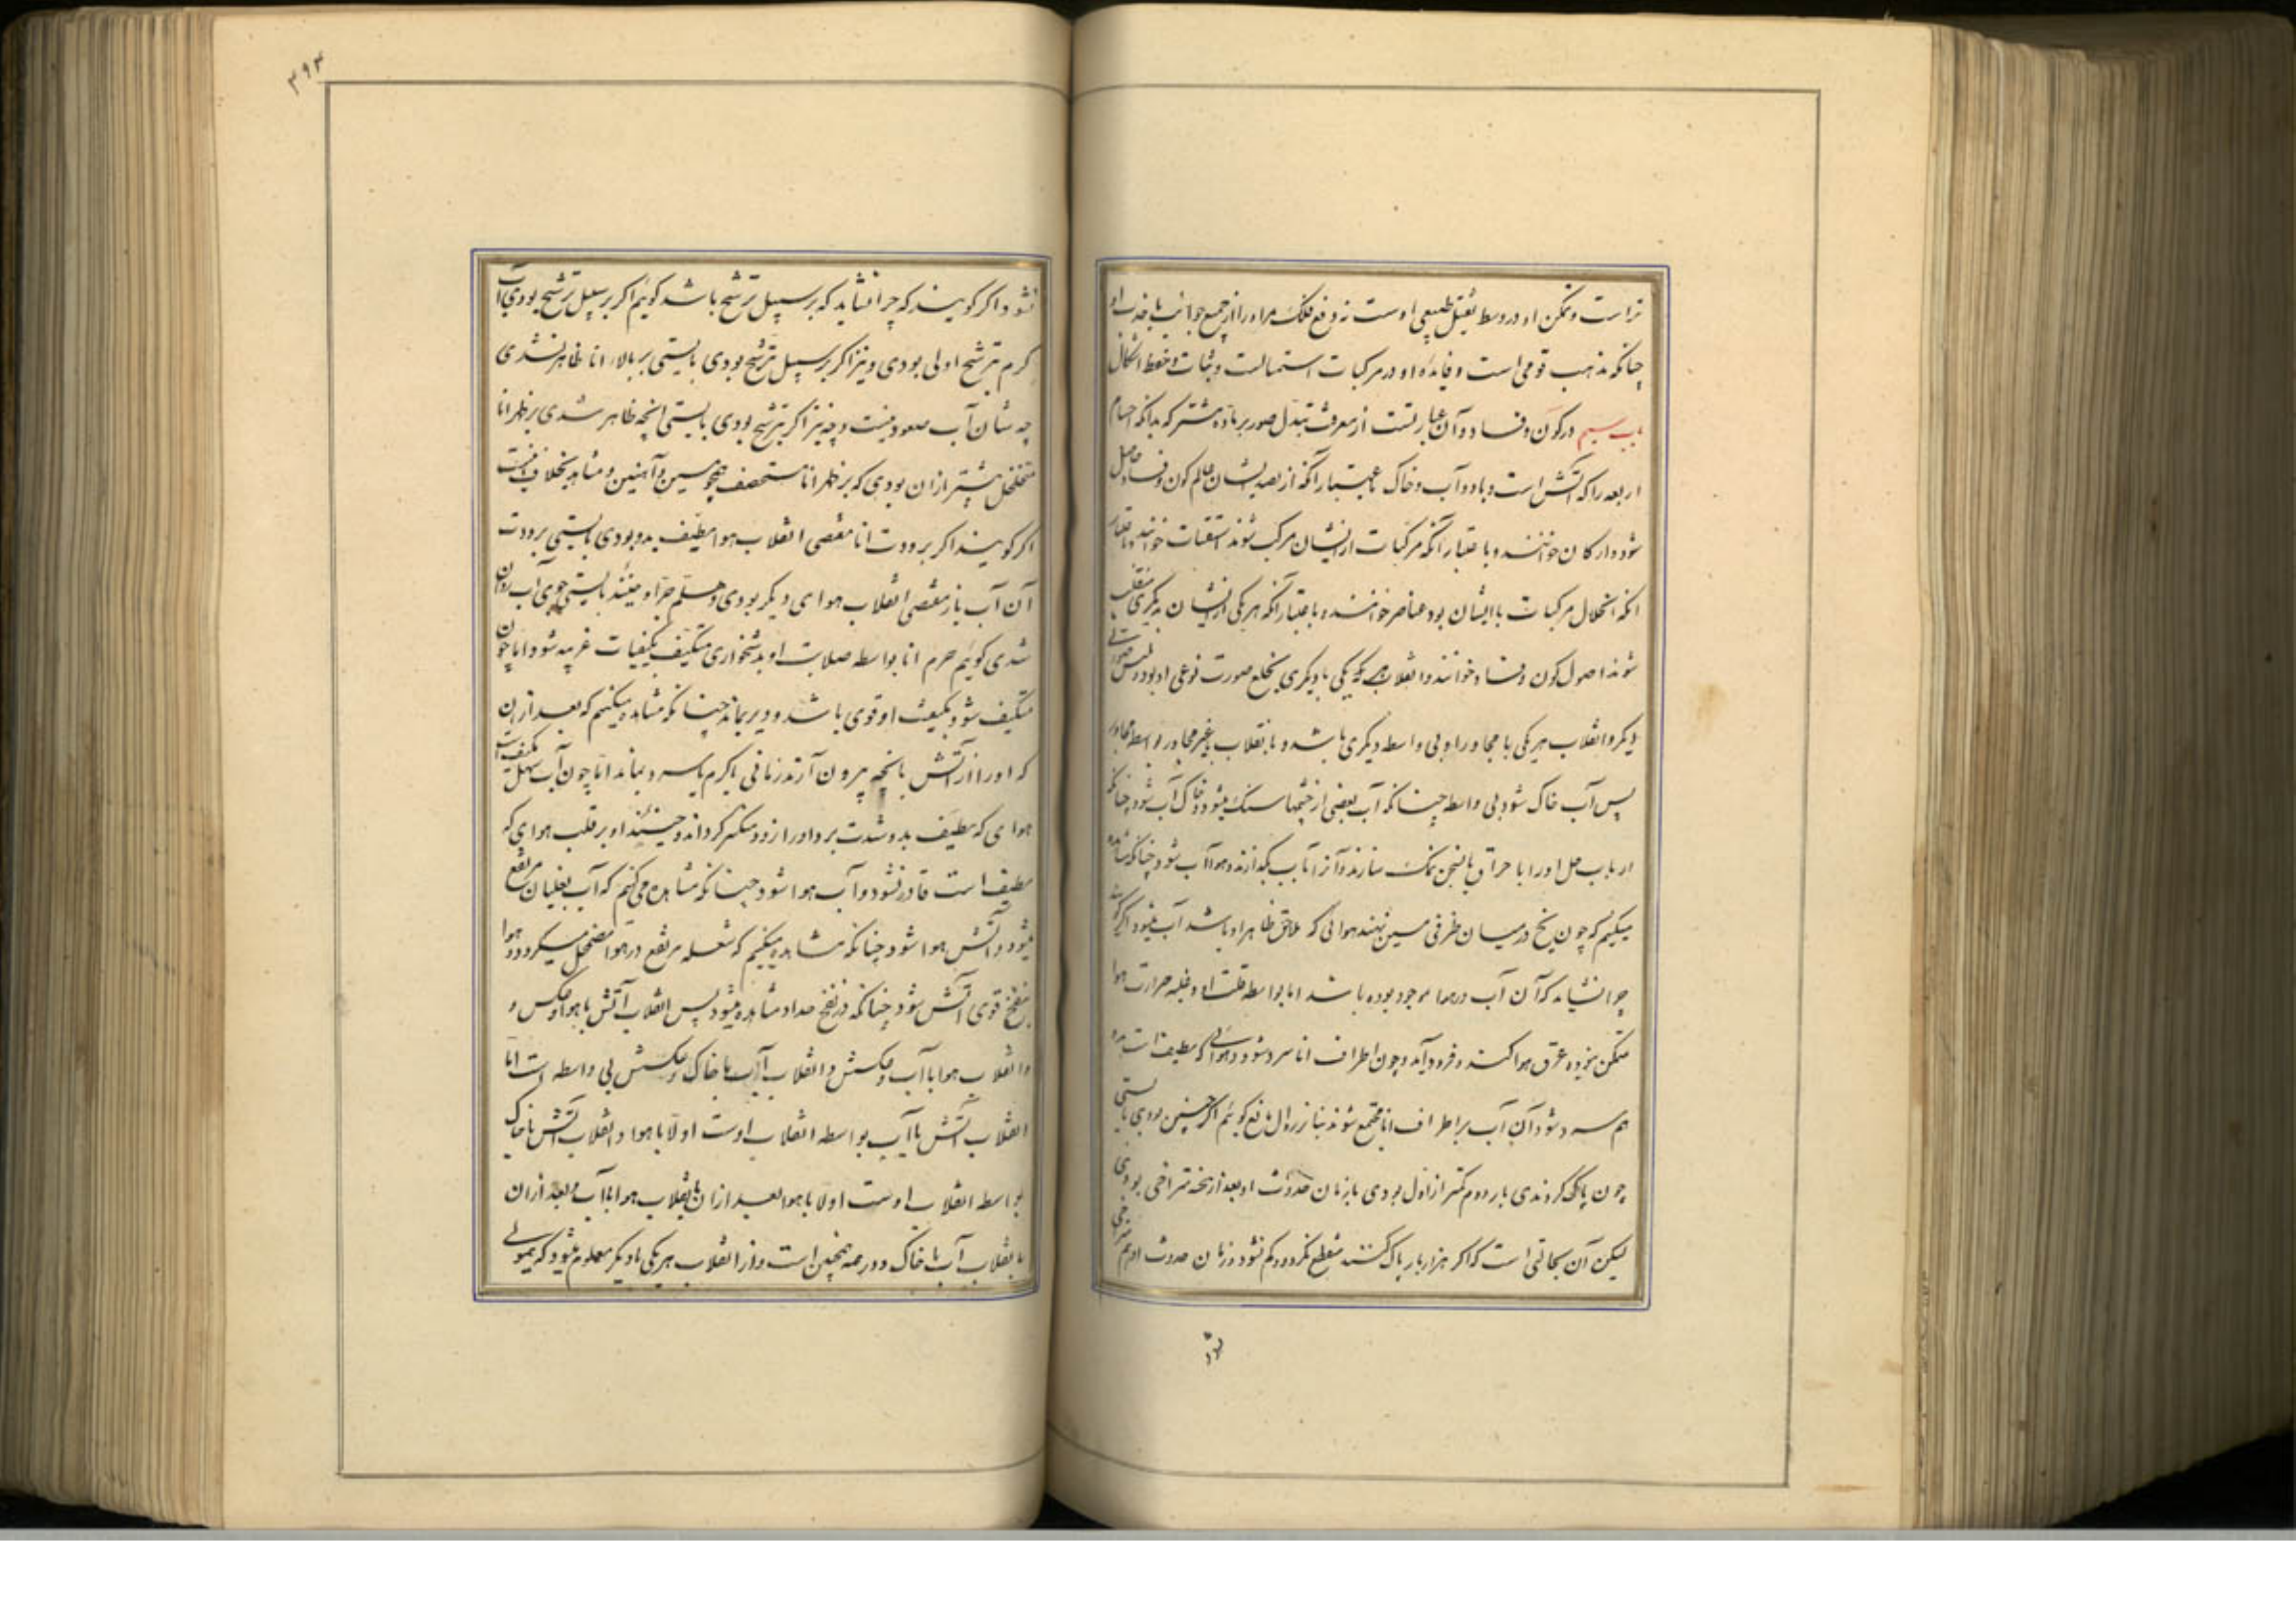 تراست و تمکن او در وسط بثقل طبیعی اوست نه دفع فلک مر او را از جمیع جوانب یا جذب او
چنانکه مذهب قومی است و فایده او در مرکبات استمساکست و ثبات و حفظ اشکال
باب سیم در کون و فساد و آن عبارتست از معرفت تبدل صور بر ماده مشترکه بدانکه اجسام
اربعه را که آتش است و باد و آب و خاک باعتبار آنکه از نضد ایشان عالم کون و فساد حاصل
شود ارکان خوانند و باعتبار آنکه مرکبات از ایشان مرکب شوند اسطقسات خوانند و باعتبار
آنکه انحلال مرکبات با ایشان بود عناصر خوانند و باعتبار آنکه هریکی از ایشان بدیگری منقلب
شوند اصول کون و فساد خوانند و انقلاب هریکی با دیگری بخلع صورت نوعی او بود و لبس صورتی
دیگر و انقلاب هریکی با مجاور او بی واسطه دیگری باشد و بانقلاب با غیر مجاور بواسطه مجاور
پس آب خاک شود بی واسطه چنانکه آب بعضی از چشمها سنک میشود و خاک آب شود چنانکه
ارباب حل او را با حراق یا بسحق نمک سازند و آنرا بآب بگدازند و هوا آب شود چنانکه مشاهده
میکنیم که چون یخ در میان ظرفی مسین نهند هوائی که ملاقی ظاهر او باشد آب میشود اگر گویند
چرا نشاید که آن آب در هوا موجود بوده باشد اما بواسطه قلت او و غلبه حرارت هوا
متمکن نبوده خرق هوا کند و فرود آید و چون اطراف انا سرد شود و هوائی که مطیف انا بود
هم سرد شود آن آب بر اطراف انا مجتمع شوند بنا بر زوال مانع گوئیم اگر چنین بودی بایستی
چون پاک کردندی بار دوم کمتر از اول بودی یا زمان حدوث او بعد از تنحیه متراخی بودی
لیکن آن بحالتی است که اگر هزار بار پاک کنند منقطع نگردد و کم نشود و زمان حدوث او هم متراخی
نشود
۳۹۴
نشود اگر گویند که چرا نشاید که بر سبیل ترشح باشد گوئیم اگر بر سبیل ترشح بودی آب
گرم بترشح اولی بودی و نیز اگر بر سبیل ترشح بودی بایستی بر بالاء انا ظاهر نشدی
چه شان آب صعود نیست و چه نیز اگر بترشح بودی بایستی آنچه ظاهر شدی بر ظهر اناء
متخلخل بیشتر از آن بودی که بر ظهر اناء مستحصف همچو مسین و آهنین و مشاهد بخلاف اینست
اگر گویند اگر برودت انا مقتضی انقلاب هواء مطیف بدو بودی بایستی برودت
آن آب باز مقتضی انقلاب هوای دیگر بودی و هلم جرا و حینئذ بایستی جوی آب روان
شدی گوئیم جرم انا بواسطه صلابت او بدشخواری متکیف بکیفیات غریبه شود اما چون
متکیف شود کیفیت او قوی باشد و دیر بماند چنانکه مشاهده میکنیم که بعد از آن
که او را از آتش یا یخ بیرون آرند زمانی یا گرم یا سرد بماند اما چون آب سهل التکیف است
هوای که مطیف بدو شدت برد او را زود منکسر گرداند و حینئذ او بر قلب هوای که
مطیف است قادر نشود و آب هوا شود چنانکه مشاهده می کنیم که آب بغلیان مرتفع
میشود و آتش هوا شود چنانکه مشاهده میکنیم که شعله مرتفع در هوا مضمحل میگردد و هوا
بنفخ قوی آتش شود چنانکه در نفخ حداد مشاهده میشود پس انقلاب آتش با هوا و عکس و
و انقلاب هوا با آب و عکسش و انقلاب آب با خاک و عکسش بی واسطه است اما
انقلاب آتش با آب بواسطه انقلاب اوست اولا با هوا و انقلاب آتش با خاک
بواسطه انقلاب اوست اولا با هوا بعد از آن بانقلاب هوا با آب و بعد از آن
بانقلاب آب با خاک و در همه همچنین است و از انقلاب هریکی با دیگر معلوم میشود که هیولی